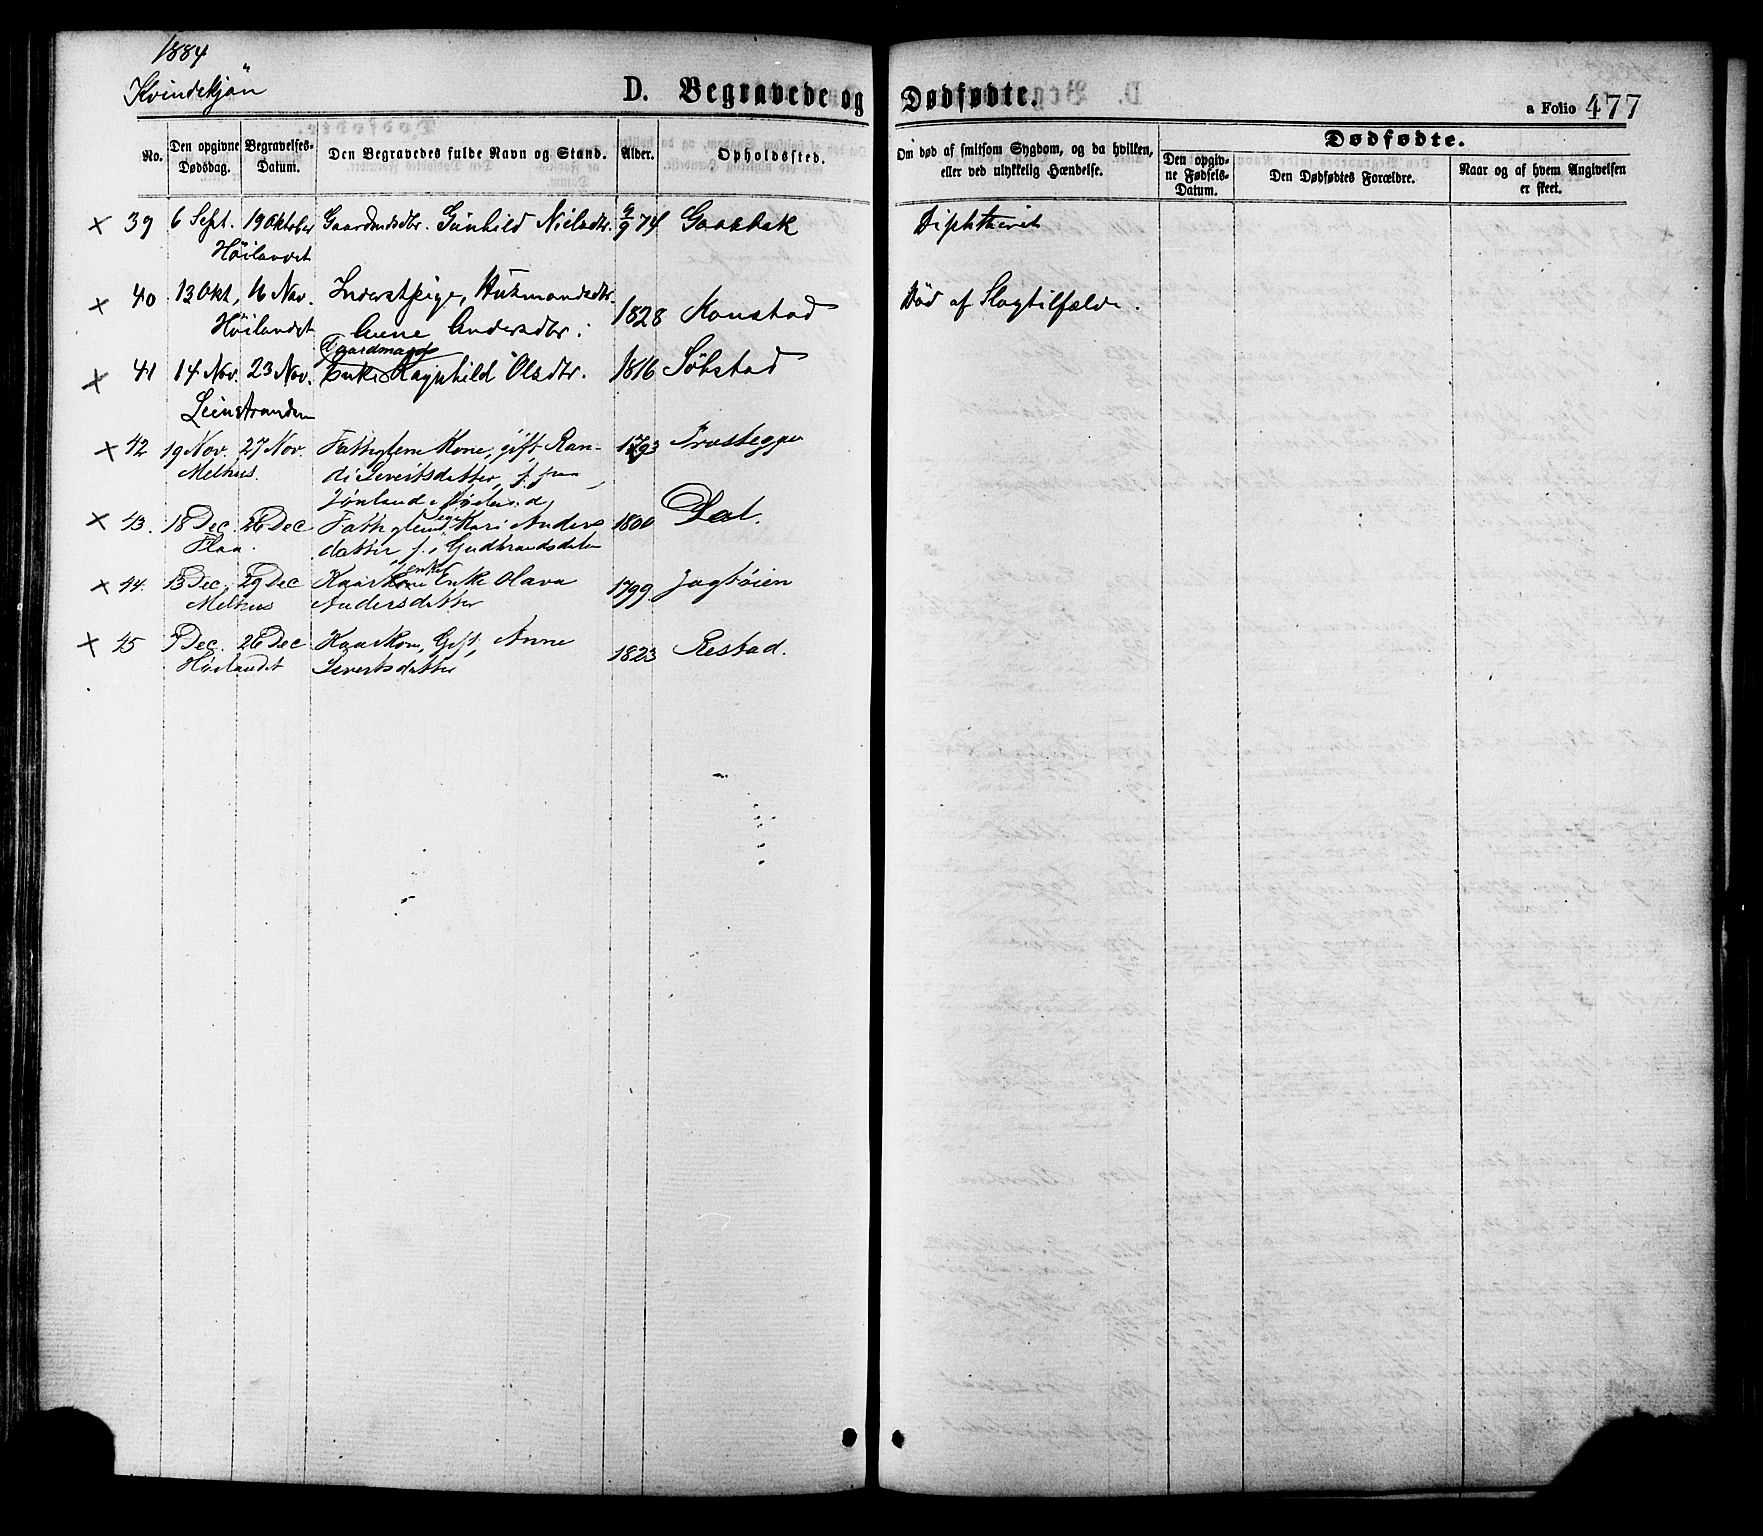 1884
Kvindekjön
D. Begravede og Dødfødte.
a Folio 477
No.
Den opgivne Dødsdag.
Begravelses-Datum.
Den Begravedes fulde Navn og Stand.
Alder.
Opholdssted.
Om død af smitsom Sygdom, og da hvilken, eller ved ulykkelig Hændelse.
Dødfødte.
Den opgivne Fødsels-Datum.
Den Dødfødtes Forældre.
Naar og af hvem Angivelsen er skeet.
× 39 6 Sept. 19 Oktober Gaardmdsdtr. Gunhild Nielsdtr. 9/9 74 Gaasbak Diphtherit
Höilandet
× 40 13 Okt, 16 Nav. Inderstpige, Husmandsdtr.
Höilandet Anne Andersdtr. 1828 Konstad Död af Slagtilfælde.
Gaardmands
× 41 14 Nov. 23 Nov. Enke Ragnhild Olsdtr. 1816 Söbstad
Leinstranden
× 42 19 Nov. 27 Nov. Fattiglem Kone, gift, Ran-
Melhus. di Sivertsdatter, f. paa 1793
× 43. 18 Dec. 26 Dec Fattiglem Kari Anders 1800 Dal.
Flaa. datter f. i Gudbrandsdalen
× 44. 13 Dec. 29 Dec Enke Olava 1799. Jagtöien
Melhus Andersdatter
× 45 7 Dec. 26 Dec Kaarkone, Gift, Anne 1823 Restad.
Höilandet Sivertsdatter